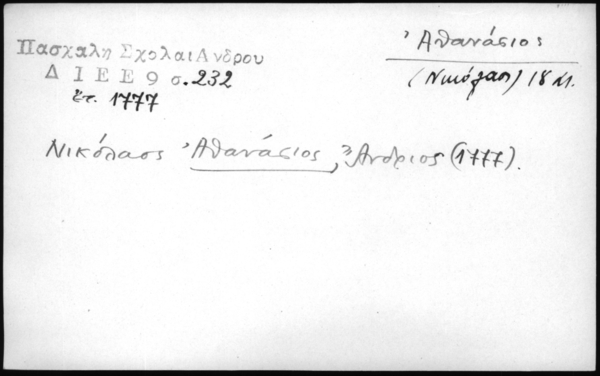 Πασχαλη ΣχολαιΑνδρου
ΔΙΕΕ9 σ.232
ἔτ. 1777
Ἀθανάσιος
(Νικόλαος) 18 αι.
Νικόλαος Ἀθανάσιος, Ἄνδριος (1777).